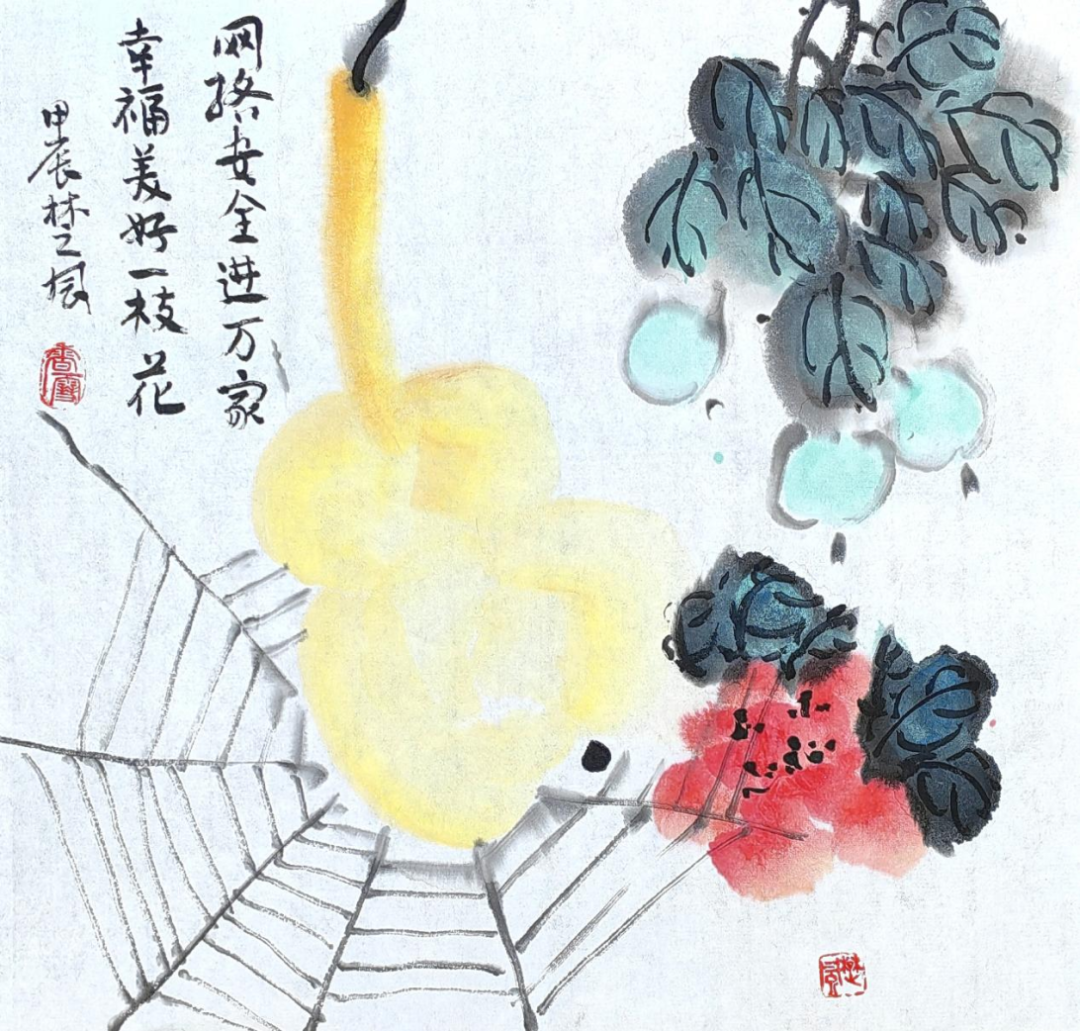 网络安全进万家
幸福美好一枝花
甲辰林之风